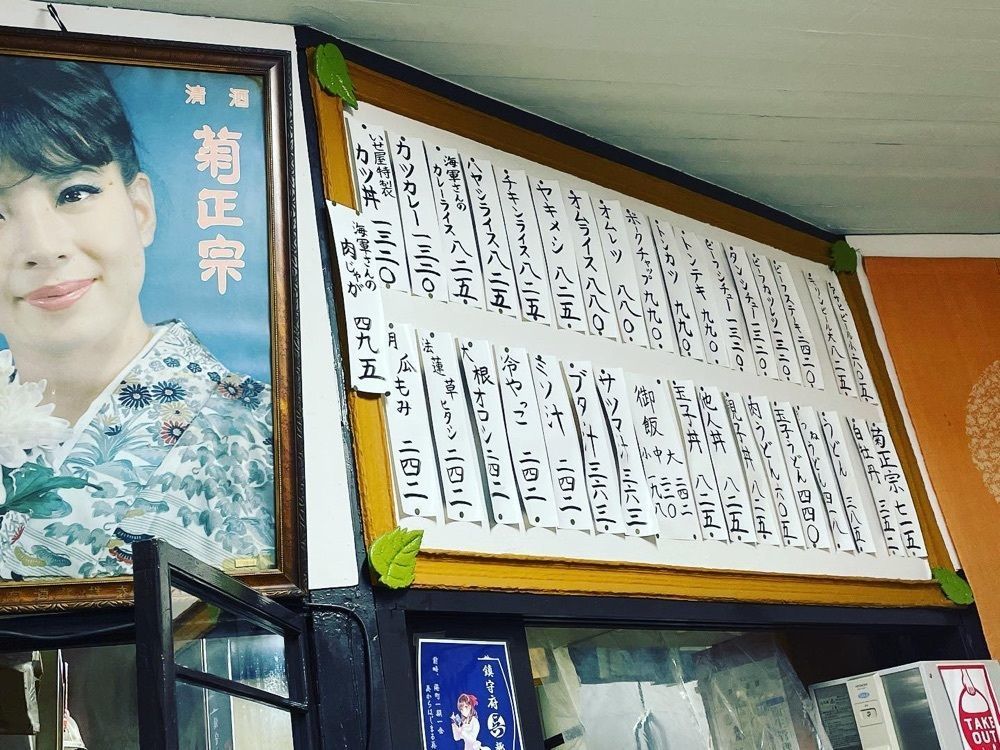 清酒
菊正宗
ビール小 六〇五
キリンビール大 八二五
ビフステーキ 二四二〇
ビーフカツレツ 一三二〇
タンシチュー 一三二〇
ビーフシチュー 一三二〇
トンテキ 九九〇
トンカツ 九九〇
ポークチャップ 九九〇
オムレツ 八八〇
オムライス 八八〇
ヤキメシ 八二五
チキンライス 八二五
ハヤシライス 八二五
海軍さんの
カレーライス 八二五
カツカレー 一三二〇
いせ屋特製
カツ丼 一三二〇
海軍さんの
肉じゃが 四九五
菊正宗 七一五
白牡丹 三五二
うどん
うどん
玉子うどん
肉うどん
親子丼 八二五
他人丼 八二五
玉子丼
御飯
大 二四二
中
小 一九八
サツマ汁 三六三
ブタ汁 三六三
ミソ汁 二四二
冷やっこ 二四二
大根オコン 二四二
法蓮草ヒタシ 二四二
瓜もみ 二四二
鎮守府
TAKE
OUT